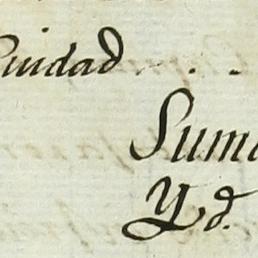 Ciudad . . .
Suma
Yd.